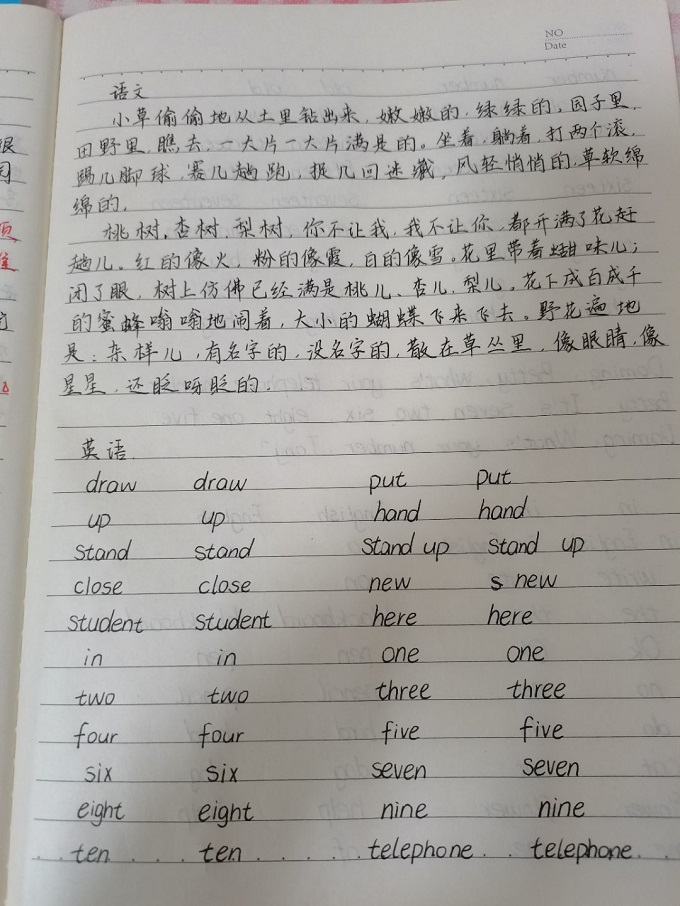 NO
Date
语文
小草偷偷地从土里钻出来，嫩嫩的，绿绿的，园子里，
田野里，瞧去，一大片一大片满是的。坐着，躺着，打两个滚，
踢几脚球，赛几趟跑，捉几回迷藏，风轻悄悄的，草软绵
绵的。
桃树，杏树，梨树，你不让我，我不让你，都开满了花赶
趟儿。红的像火，粉的像霞，白的像雪。花里带着甜味儿；
闭了眼，树上仿佛已经满是桃儿、杏儿，梨儿。花下成百成千
的蜜蜂嗡嗡地闹着，大小的蝴蝶飞来飞去。野花遍地
是：杂样儿，有名字的，没名字的，散在草丛里，像眼睛，像
星星，还眨呀眨的。
英语
draw draw put put
up up hand hand
stand stand stand up stand up
close close new s new
student student here here
in in one one
two two three three
four four five five
six six seven seven
eight eight nine nine
ten ten telephone telephone